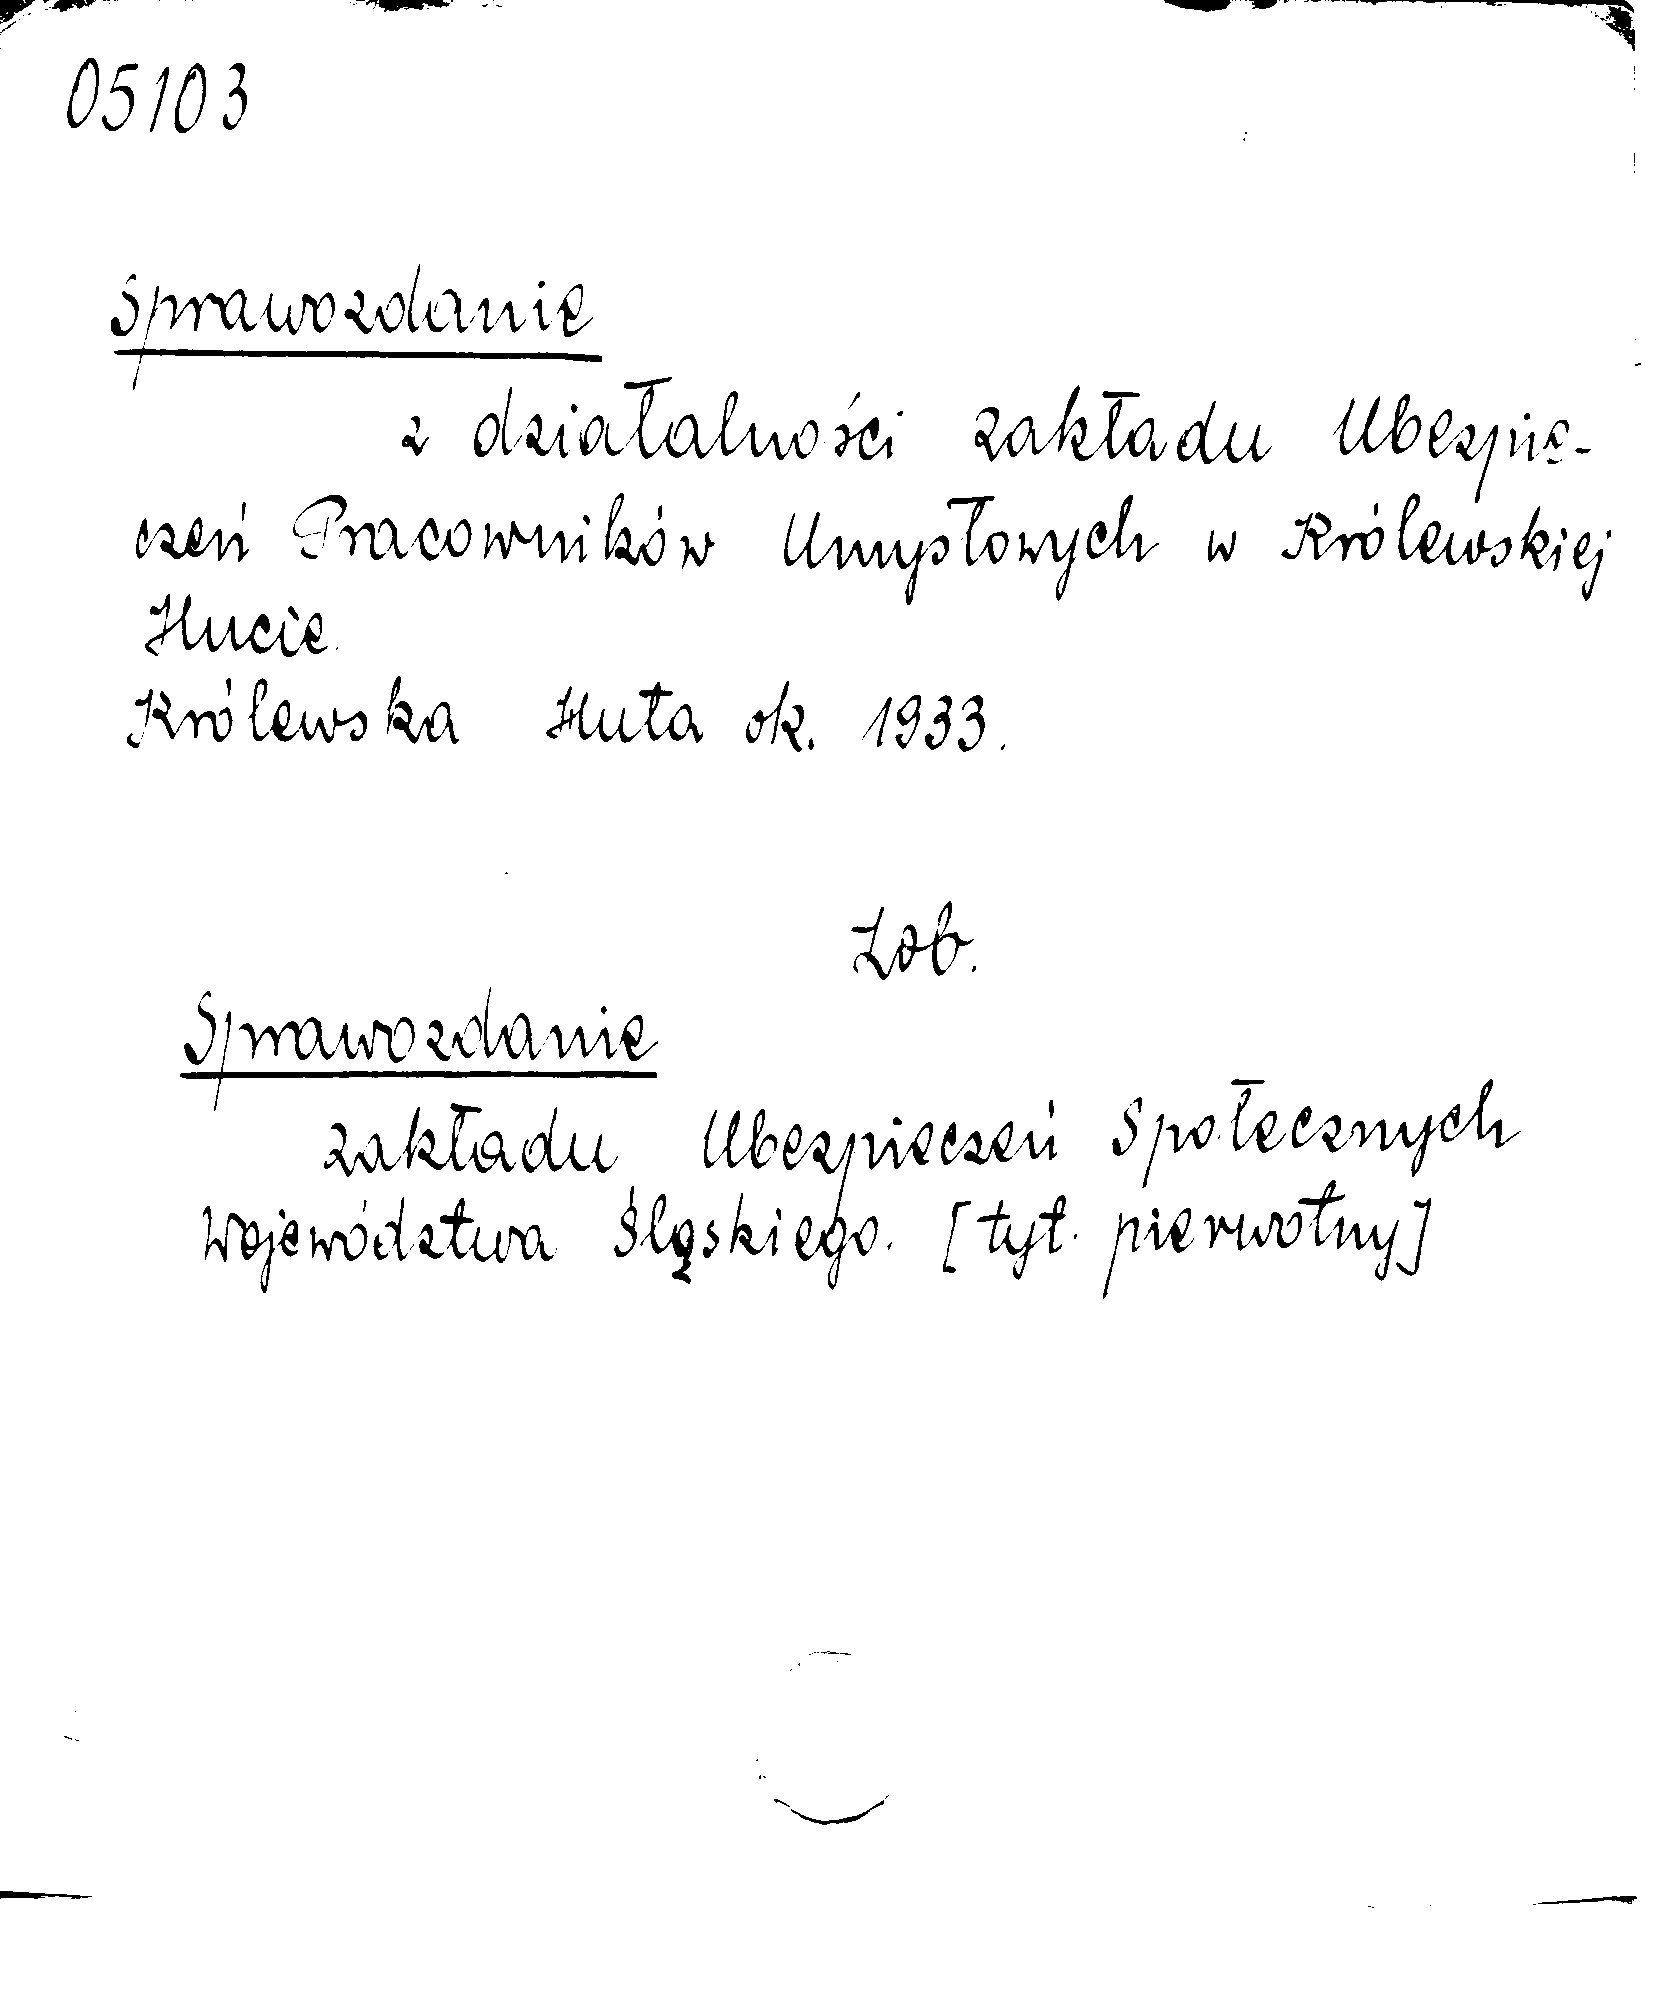 05103
Sprawozdanie
z działalności Zakładu Ubezpie-
czeń Pracowników Umysłowych w Królewskiej
Hucie.
Królewska Huta ok. 1933.
Zob.
Sprawozdanie
Zakładu Ubezpieczeń Społecznych
Województwa Śląskiego. [tyt. pierwotny]